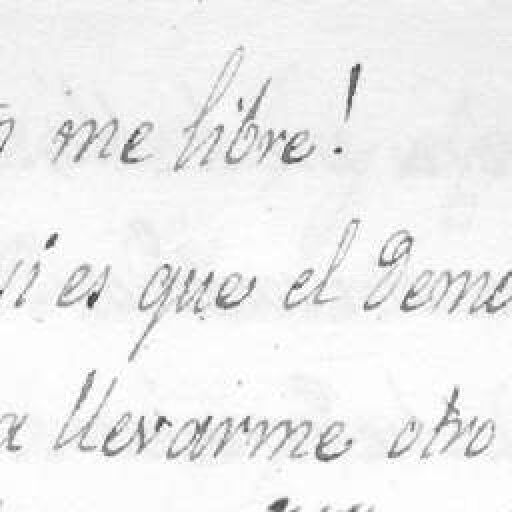 me libre!
si es que el Demo
a llevarme otro